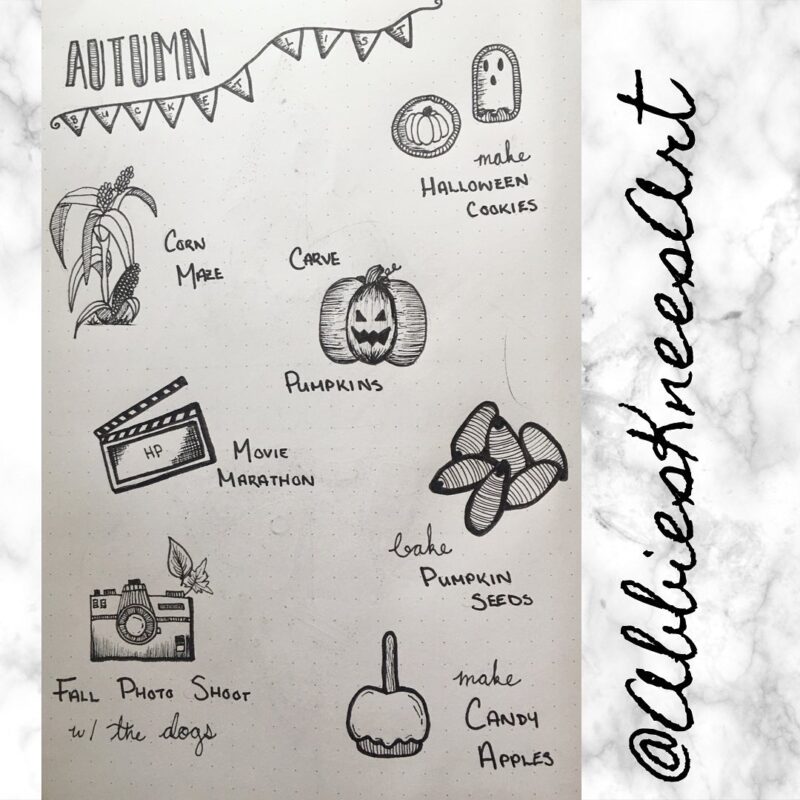 AUTUMN
BUCKET LIST
make
HALLOWEEN
COOKIES
CORN
MAZE
CARVE
PUMPKINS
HP
MOVIE
MARATHON
bake
PUMPKIN
SEEDS
FALL PHOTO SHOOT
w/ the dogs
make
CANDY
APPLES
@AbbiesKneesArt